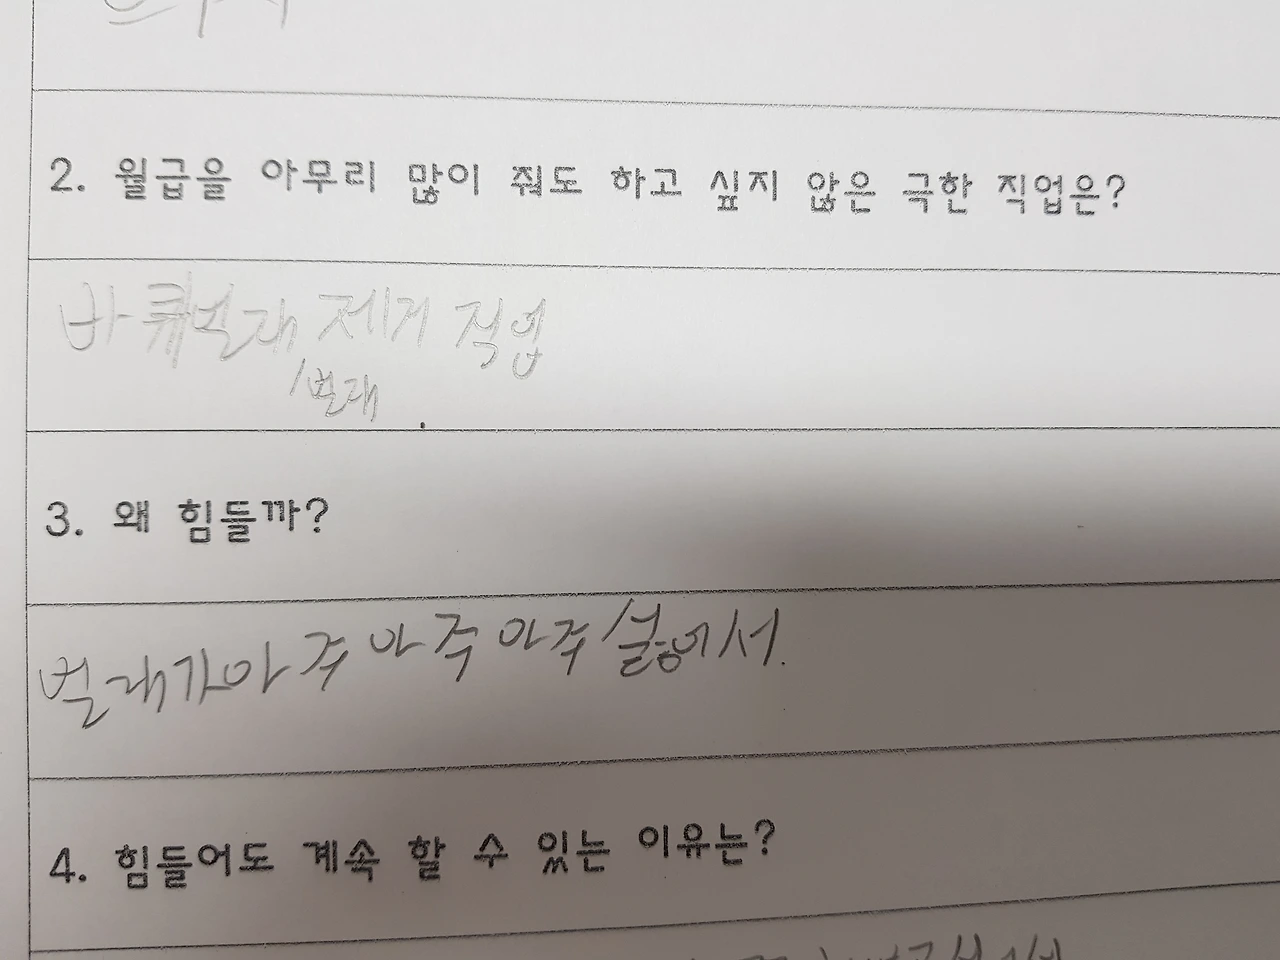 2. 월급을 아무리 많이 줘도 하고 싶지 않은 극한 직업은?
바퀴벌래 제거 직업
/벌래
3. 왜 힘들까?
벌래가 아주 아주 아주 싫어서.
4. 힘들어도 계속 할 수 있는 이유는?